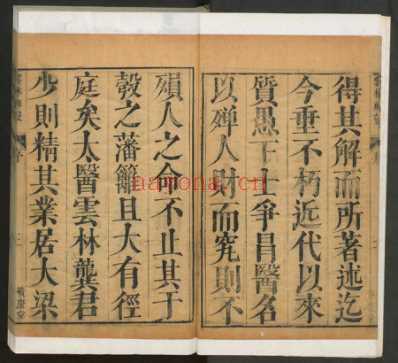 得其解而所著述迄
今垂不朽近代以來
質愚下士爭昌醫名
以殫人財而究則不
殞人之命不止其于
彀之藩籬且大有徑
庭矣太醫雲林龔君
少則精其業居大梁